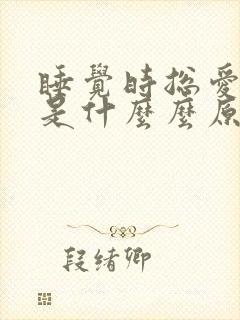 睡覺時總愛
是什麼麼原
段緒卿